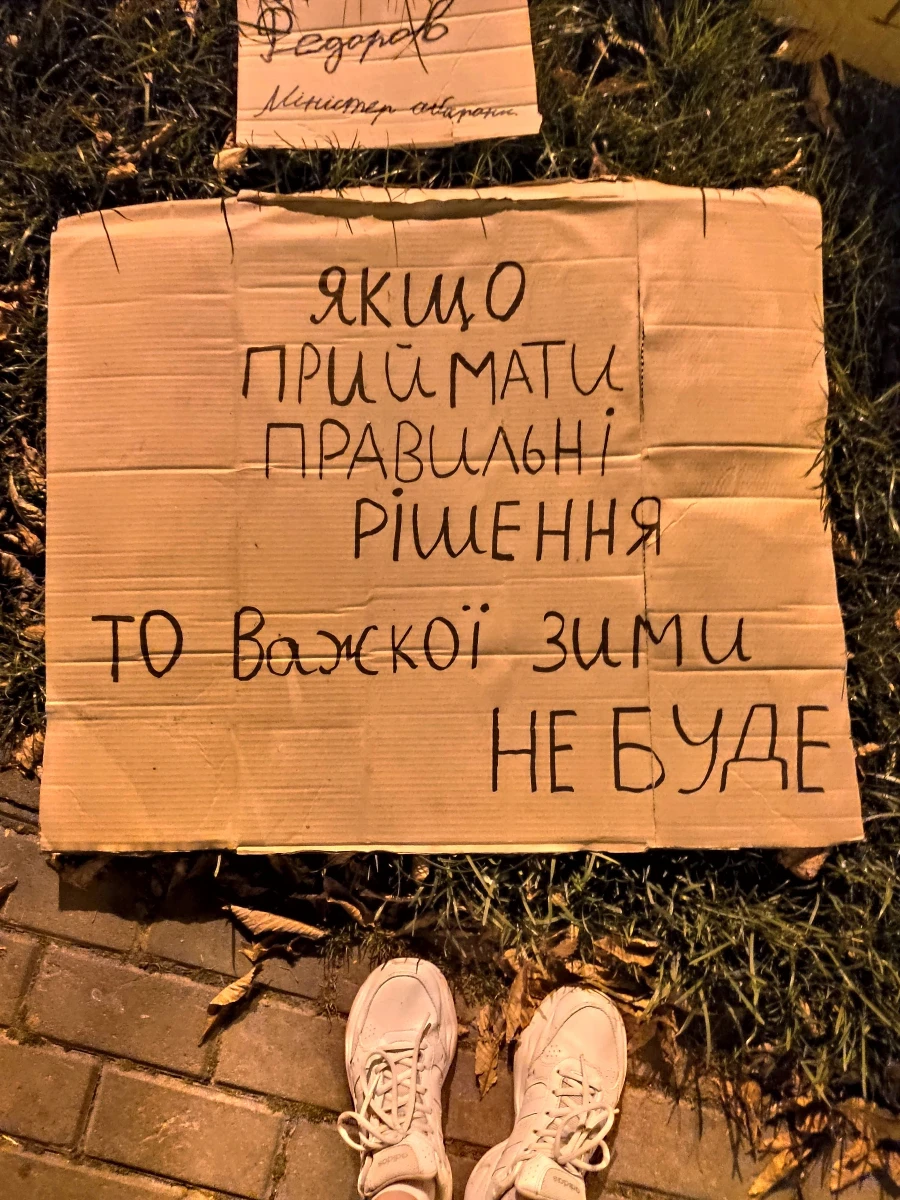 Федоров
Міністер оборони
ЯКЩО
ПРИЙМАТИ
ПРАВИЛЬНІ
РІШЕННЯ
ТО Важкої зими
НЕ БУДЕ
adidas